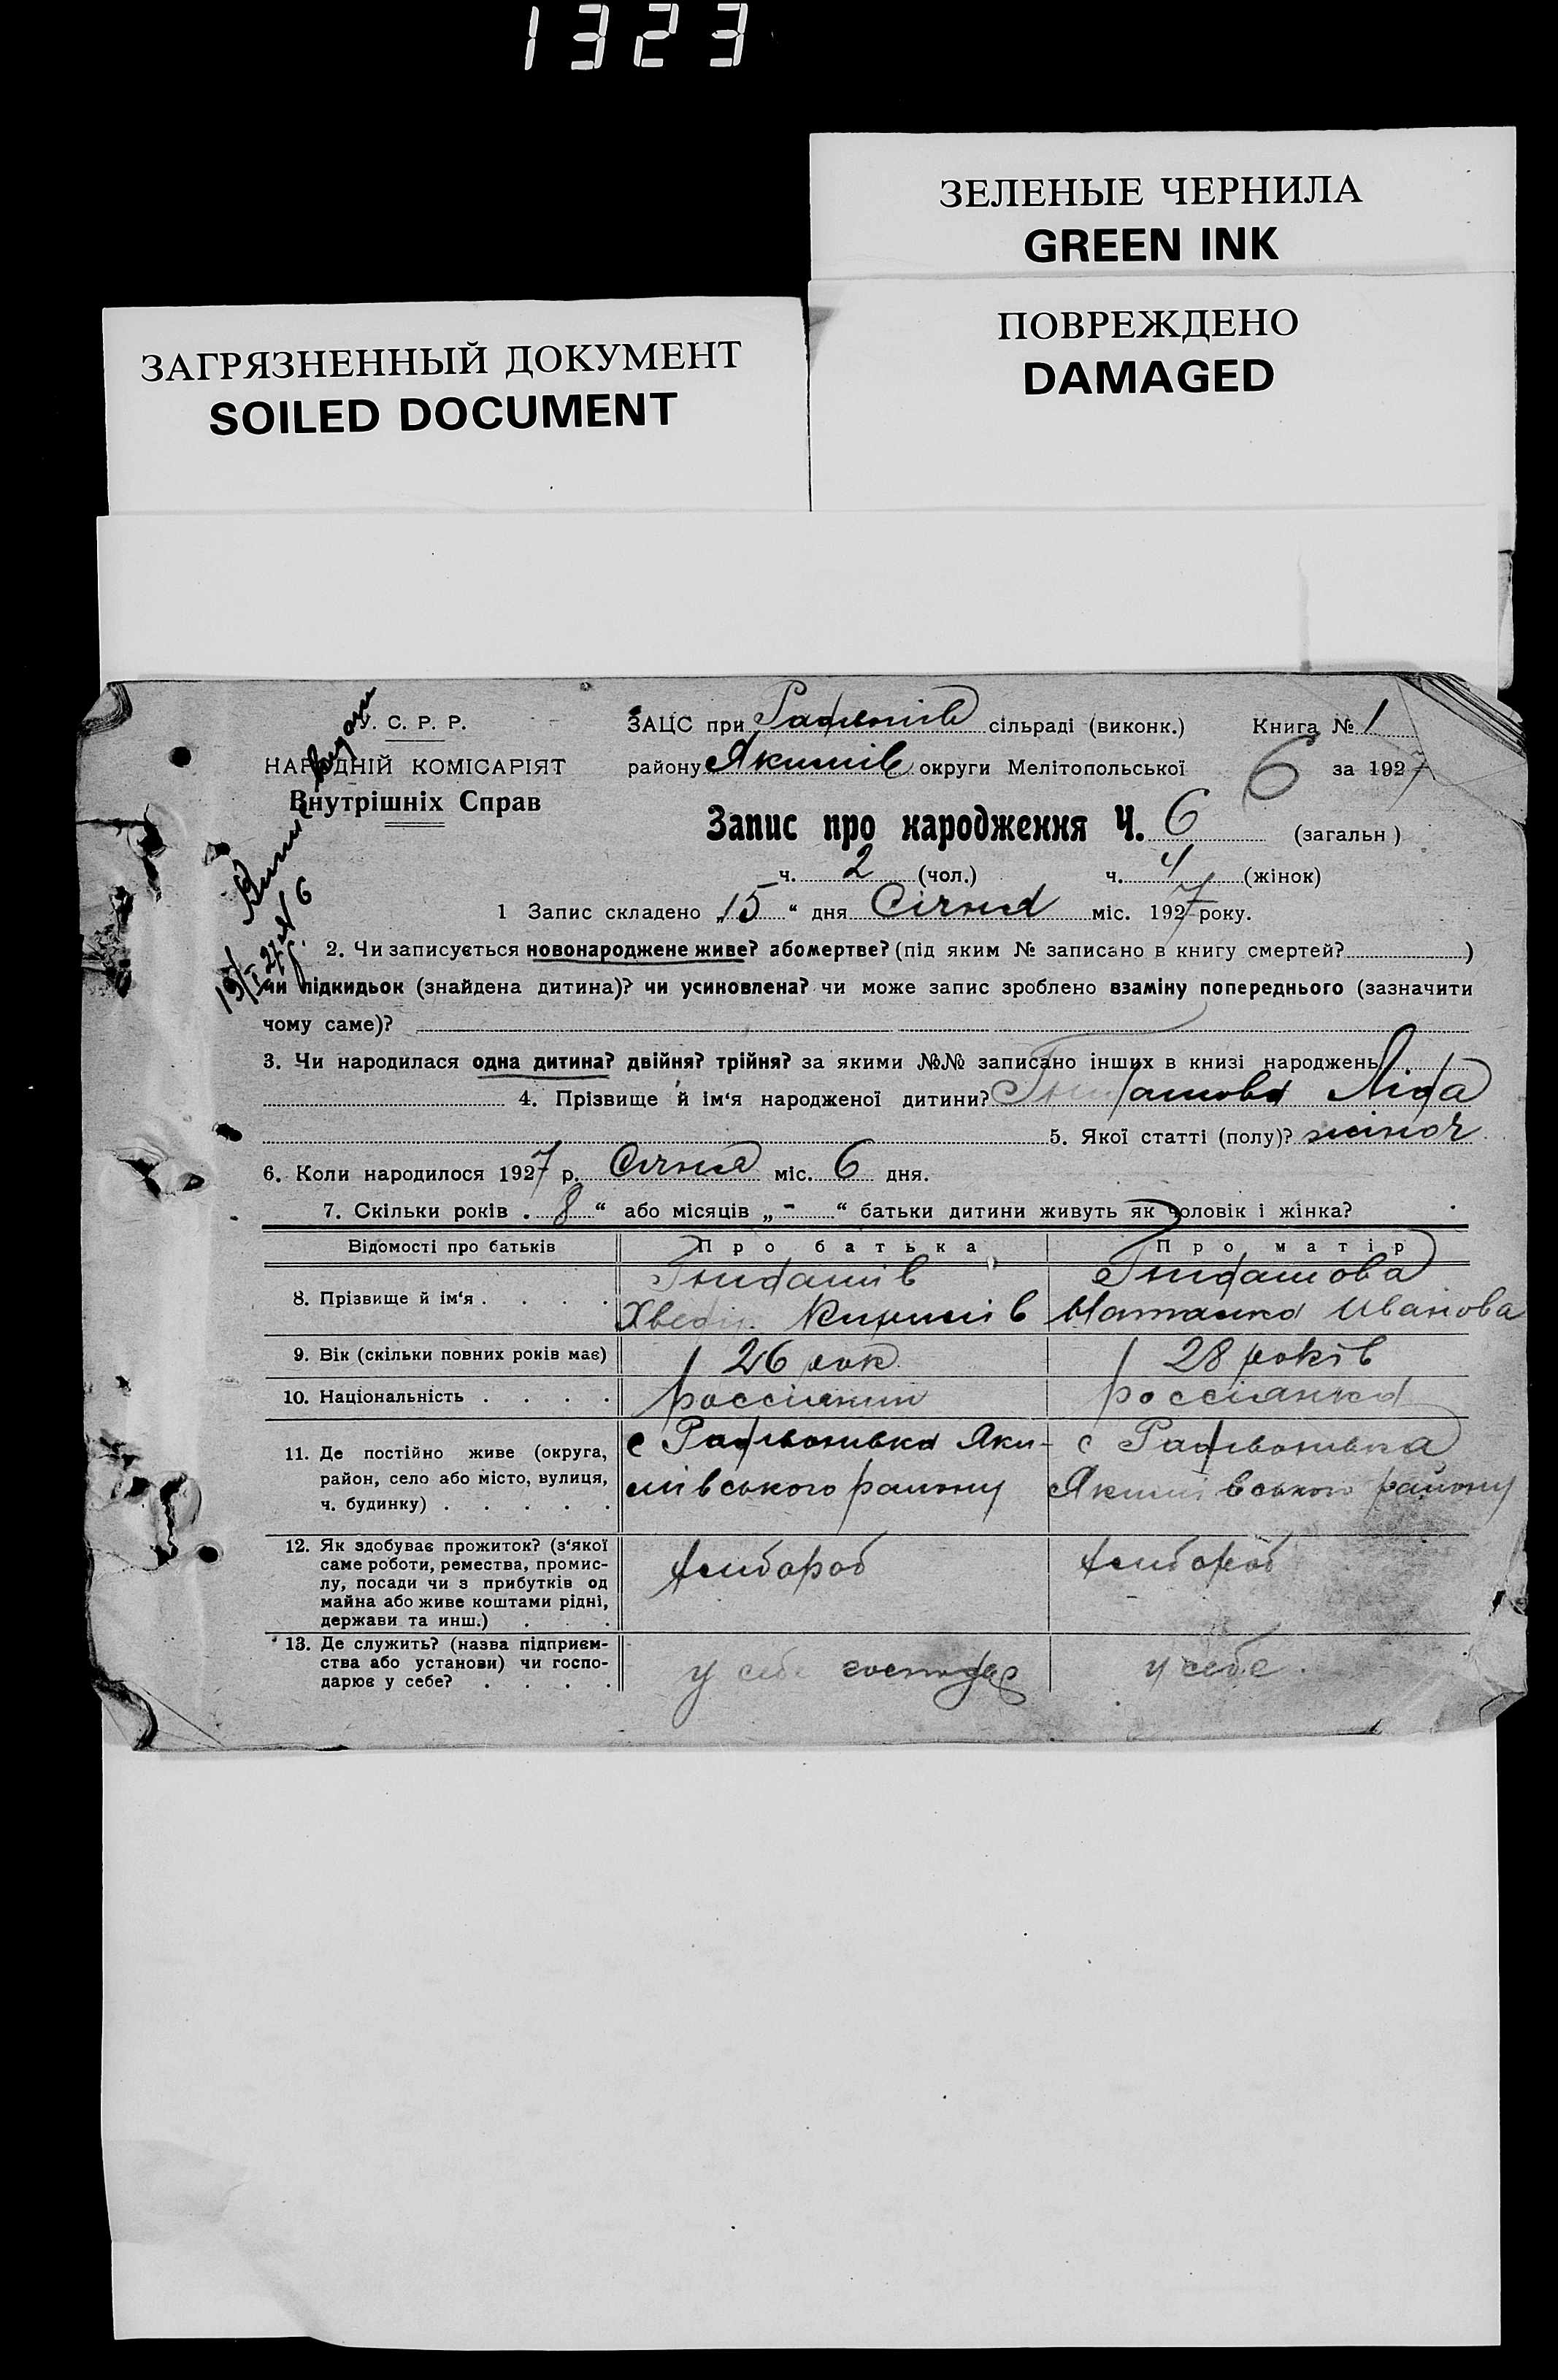 1323
ЗЕЛЕНЫЕ ЧЕРНИЛА
GREEN INK
ПОВРЕЖДЕНО
DAMAGED
ЗАГРЯЗНЕННЫЙ ДОКУМЕНТ
SOILED DOCUMENT
У. С. Р. Р.
НАРОДНІЙ КОМІСАРІЯТ
Внутрішніх Справ
ЗАЦС при сільраді (виконк.) Книга № 1
району Якимів округи Мелітопольської 6 за 1927
Запис про народження Ч. 6 (загальн)
ч. 2 (чол.) ч. 4 (жінок)
1 Запис складено „15“ дня Січня міс. 1927 року.
2. Чи записується новонароджене живе? або мертве? (під яким № записано в книгу смертей? )
чи підкидьок (знайдена дитина)? чи усиновлена? чи може запис зроблено взаміну попереднього (зазначити
чому саме)?
3. Чи народилася одна дитина? двійня? трійня? за якими №№ записано інших в книзі народжень
4. Прізвище й ім‘я народженої дитини? Ліда
5. Якої статті (полу)? жіноч
6. Коли народилося 1927 р. Січня міс. 6 дня.
7. Скільки років . 8 “ або місяців „ - “ батьки дитини живуть як чоловік і жінка?
Відомості про батьків Про батька Про матір
8. Прізвище й ім‘я . . . . Гнидашів Гнидашова
Хведір Кирилів Наталка Иванова
9. Вік (скільки повних років має) 26 рок 28 років
10. Національність . . . . россіянин россіянка
11. Де постійно живе (округа,
район, село або місто, вулиця,
ч. будинку) . . . . .
с Яки-
мівського району
с
Якимівського району
12. Як здобуває прожиток? (з‘якої
саме роботи, ремества, промис-
лу, посади чи з прибутків од
майна або живе коштами рідні,
держави та инш.) . . .
хлибороб хлибороб
13. Де служить? (назва підприєм-
ства або установи) чи госпо-
дарює у себе? . . . .
у себе господар у себе.